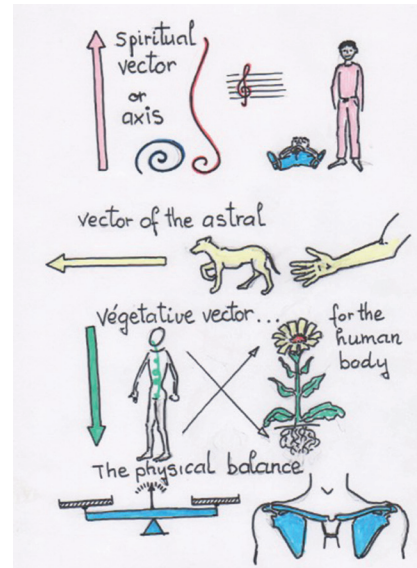 Spiritual
vector
or
axis
vector of the astral
végetative vector...
for the
human
body
The physical balance